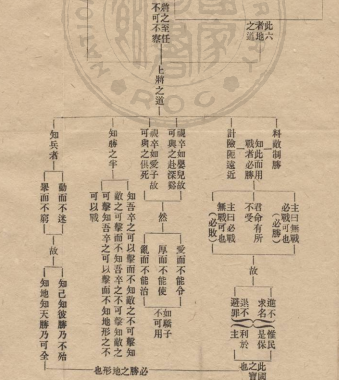 此六
者地
之道
將之至任
不可不察
上將之道
料敵制勝
計險阨遠近
知此而用
戰者必勝
主曰無戰
必戰可也
(必勝)
君命有所
不受
主曰必戰
無戰可也
(必敗)
故
進不求名
退不避罪
惟民是保
利於主
此國之寶也
視卒如嬰兒故
可與之赴深谿
視卒如愛子故
可與之俱死
然
愛而不能令
厚而不能使
亂而不能治
如驕子
不可用
知勝之半
知吾卒之可以擊而不知敵之不可擊
知敵之可擊而不知吾卒之不可以擊
知敵之可擊知吾卒之可以擊而不知地形之不可以戰
知兵者
動而不迷
舉而不窮
故
知己知彼勝乃不殆
知地知天勝乃可全
必勝之地形也
ROC